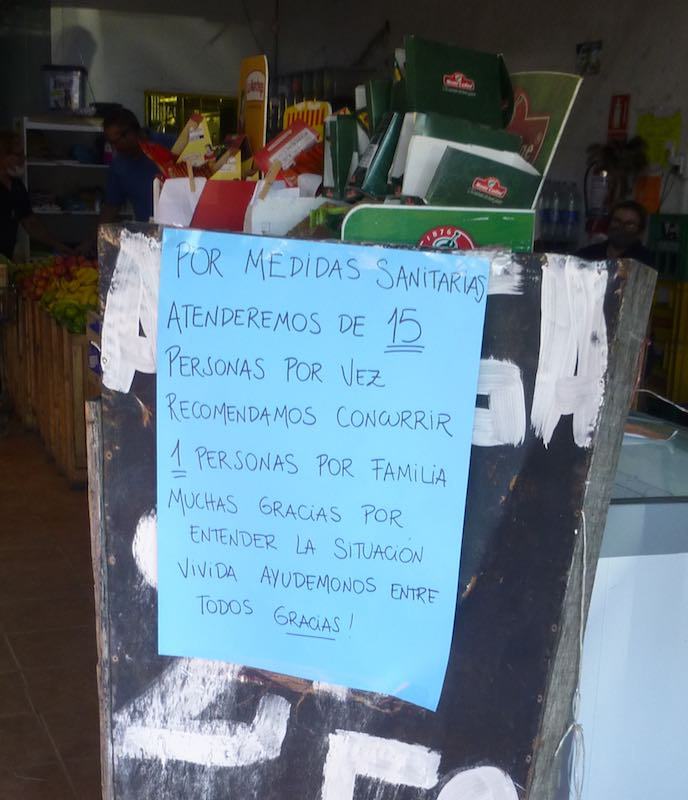 POR MEDIDAS SANITARIAS
ATENDEREMOS DE 15
PERSONAS POR VEZ
RECOMENDAMOS CONCURRIR
1 PERSONAS POR FAMILIA
MUCHAS GRACIAS POR
ENTENDER LA SITUACIÓN
VIVIDA AYUDEMONOS ENTRE
TODOS GRACIAS!
1876